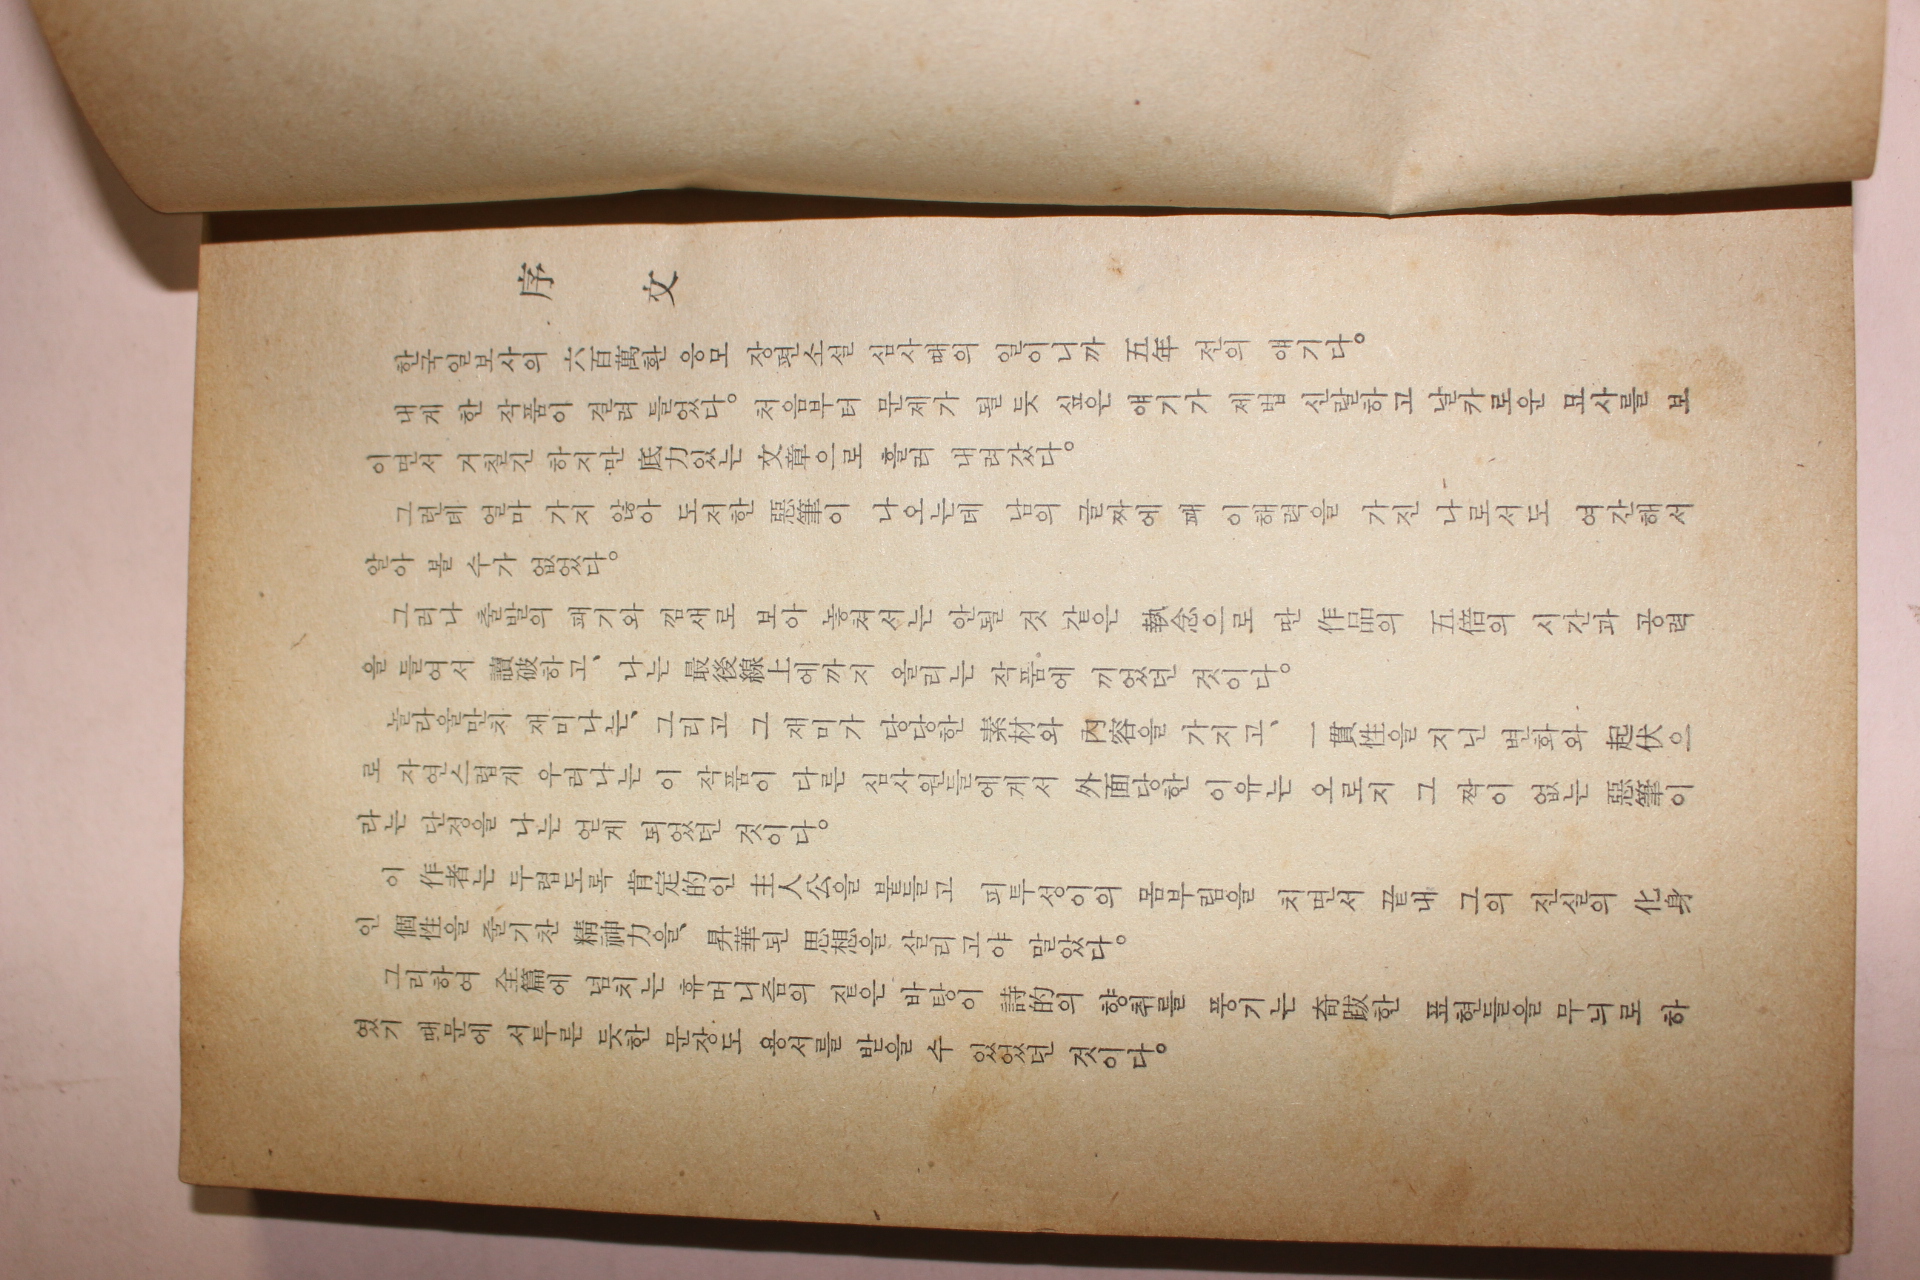 序 文
한국일보사의 六百萬환 응모 장편소설 심사때의 일이니까 五年 전의 얘기다。
내게 한 작품이 걸려 들었다。 처음부터 문제가 될듯 싶은 얘기가 제법 신랄하고 날카로운 묘사를 보
이면서 거칠긴 하지만 底力있는 文章으로 흘러 내려갔다。
그런데 얼마 가지 않아 도저한 惡筆이 나오는데 남의 글짜에 꽤 이해력을 가진 나로서도 여간해서
알아 볼 수가 없었다。
그러나 출발의 패기와 낌새로 보아 놓쳐서는 안될 것 같은 執念으로 딴 作品의 五倍의 시간과 공력
을 들여서 讀破하고、 나는 最後線上에까지 올리는 작품에 끼었던 것이다。
놀라울만치 재미나는、 그리고 그 재미가 당당한 素材와 內容을 가지고、 一貫性을 지닌 변화와 起伏으
로 자연스럽게 우러나는 이 작품이 다른 심사원들에게서 外面당한 이유는 오로지 그 짝이 없는 惡筆이
라는 단정을 나는 얻게 되었던 것이다。
이 作者는 두렵도록 肯定的인 主人公을 붙들고 피투성이의 몸부림을 치면서 끝내 그의 진실의 化身
인 個性을 줄기찬 精神力을、 昇華된 思想을 살리고야 말았다。
그리하여 全篇에 넘치는 휴머니즘의 짙은 바탕이 詩的의 향취를 풍기는 奇跋한 표현들을 무늬로 하
였기 때문에 서투른 듯한 문장도 용서를 받을 수 있었던 것이다。